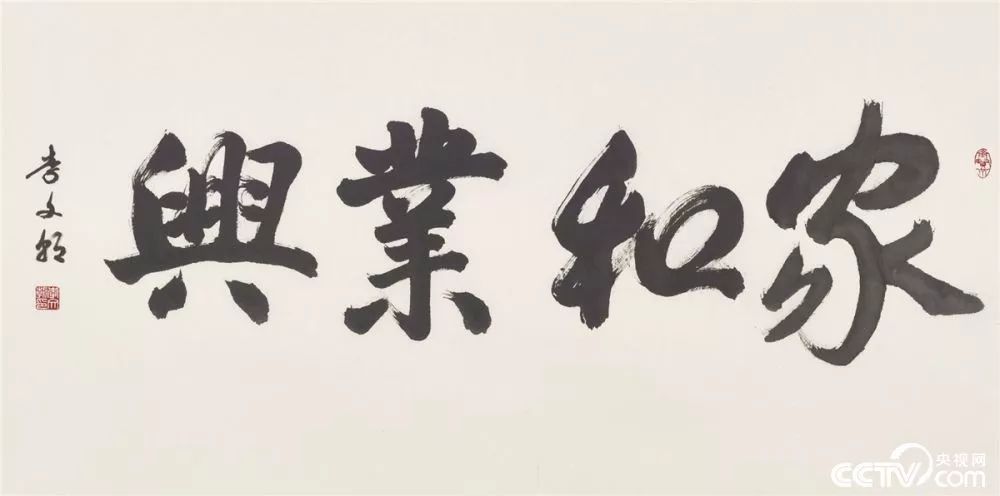 家和業興
李文朝
央视网
CCTV.com